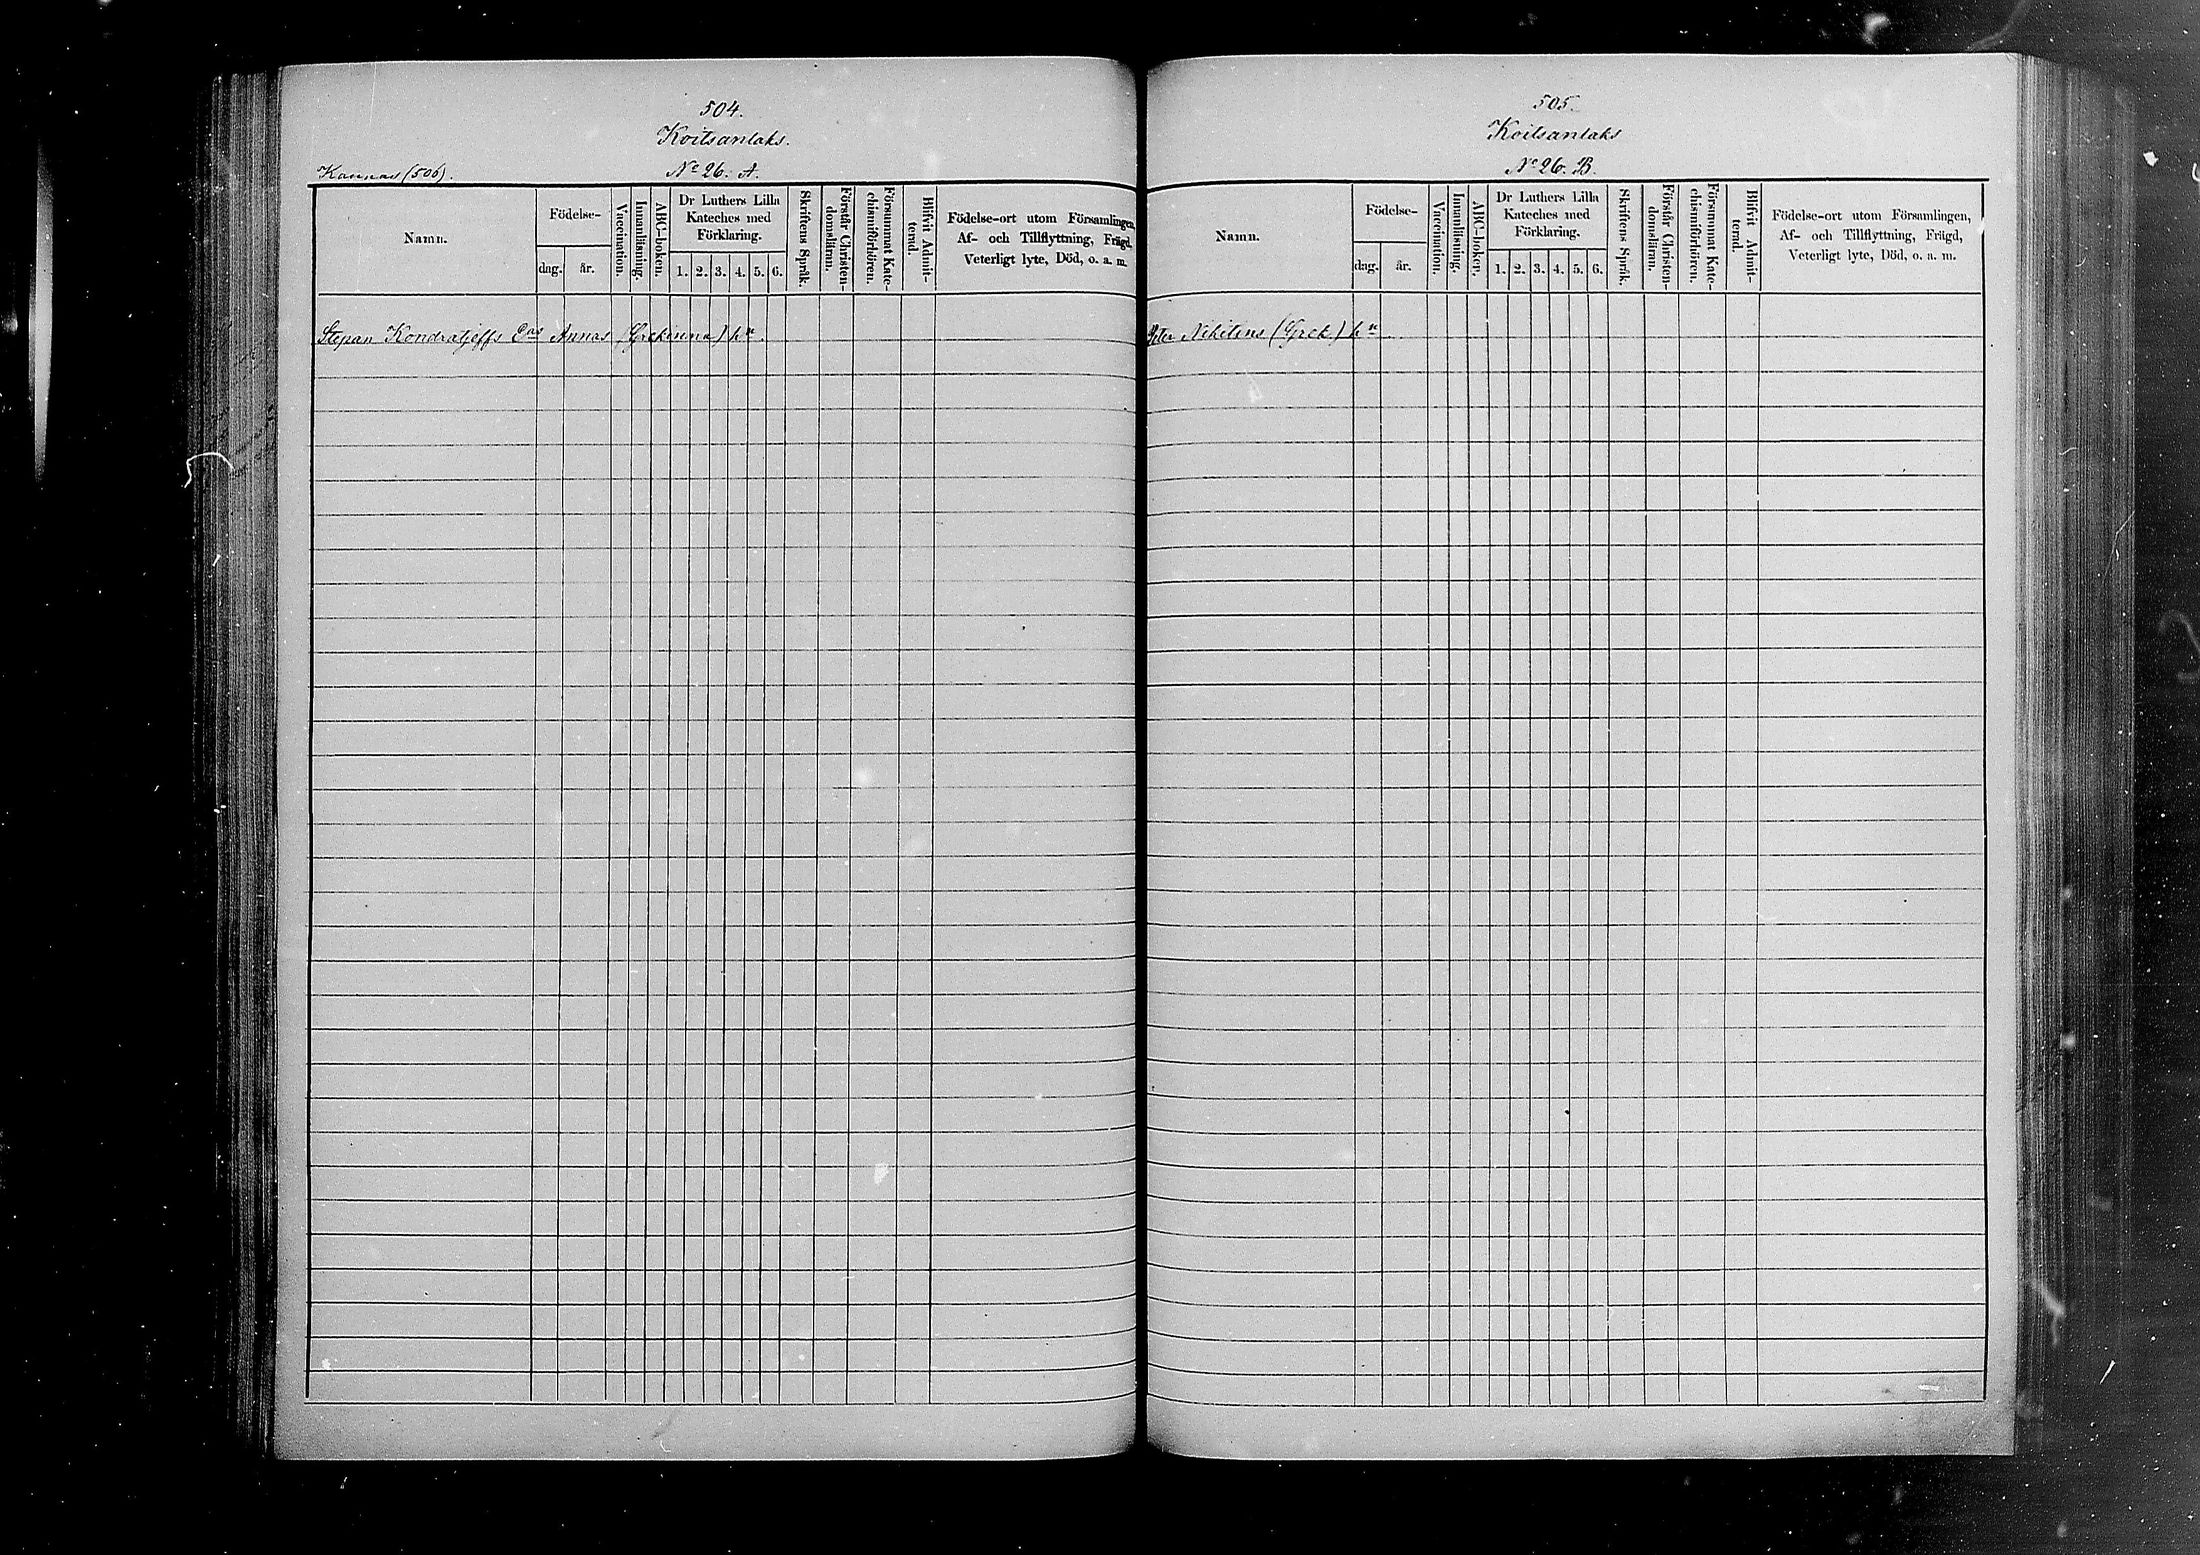 504.
Koitsanlaks.
Kannas (506).
No 26. A.
Namn.
Födelse-
dag.
år.
Vaccination.
Innanläsning.
ABC-boken.
Dr Luthers Lilla
Kateches med
Förklaring.
1. 2. 3. 4. 5. 6.
Skriftens Språk.
Förstår Christen-
domsläran.
Försummat Kate-
chismiförhören.
Blifvit Admit-
terad.
Födelse-ort utom Församlingen,
Af- och Tillflyttning, Frägd,
Veterligt lyte, Död, o. a. m.
Stepan Kondratjeffs Annas (Grekinna) hn.
505.
Koitsanlaks
No 26. B.
Namn.
Födelse-
dag.
år.
Vaccination.
Innanläsning.
ABC-boken.
Dr Luthers Lilla
Kateches med
Förklaring.
1. 2. 3. 4. 5. 6.
Skriftens Språk.
Förstår Christen-
domsläran.
Försummat Kate-
chismiförhören.
Blifvit Admit-
terad.
Födelse-ort utom Församlingen,
Af- och Tillflyttning, Frägd,
Veterligt lyte, Död, o. a. m.
Peter Nikitins (Grek.) hn.